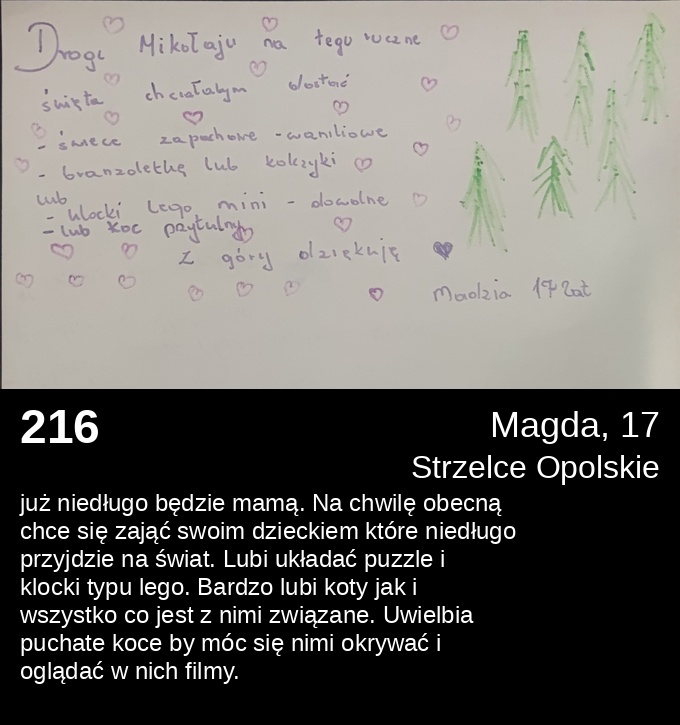 Drogi Mikołaju na tegoroczne
święta chciałabym dostać
- świece zapachowe - waniliowe
- branzoletkę lub kolczyki
lub
- klocki Lego mini - dowolne
- lub koc przytulny
Z góry dziękuję
Madzia 17 lat
216
Magda, 17
Strzelce Opolskie
już niedługo będzie mamą. Na chwilę obecną
chce się zająć swoim dzieckiem które niedługo
przyjdzie na świat. Lubi układać puzzle i
klocki typu lego. Bardzo lubi koty jak i
wszystko co jest z nimi związane. Uwielbia
puchate koce by móc się nimi okrywać i
oglądać w nich filmy.